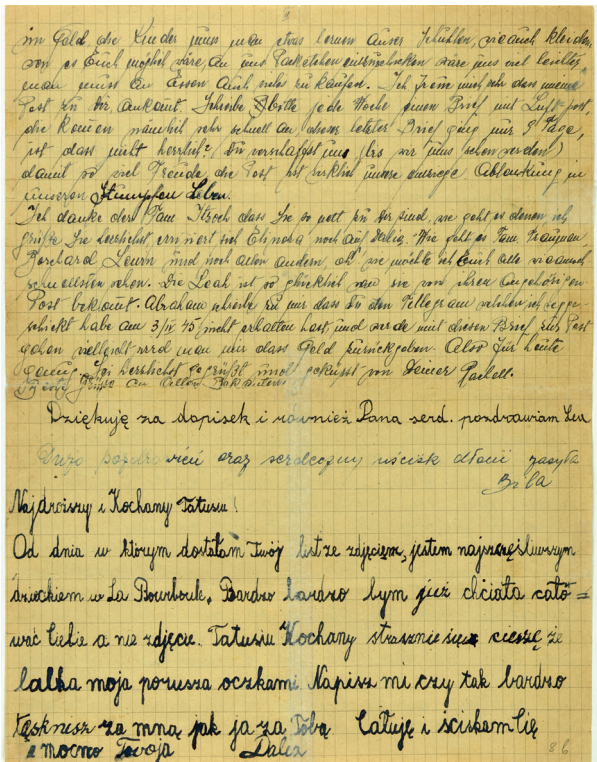 3
im Geld die Kinder muss man etwas lernen ausser Schuhlen, wie auch kleiden
wen es Euch möglich wäre, an uns Paketchen einzuschicken wäre uns viel leichter
man muss an Essen auch viel zu kaufen. Ich freue mich sehr dass meine
Post zu Dir ankomt. Schreibe jede Woche einen Brief mit Luftpost,
die komen nämlich sehr schnell an dieser letzter Brief ging nur 9 Tage,
ist dass nicht herrlich? Du verschaffst uns (bis wir uns sehen werden)
damit so viel Freude die Post ist wirklich unsere einzige Ablenkung in
unseren Stumpfen Leben.
Ich danke den Fam dass Sie so nett zu Dir sind, wie geht es denen ich
grüsse Sie herzlichst, erinnert sich noch auf Dalia. Wie geht es Fam
und noch allen andern, oh wie möchte ich Euch alle wie am
schnellsten sehen. Die Leah ist so glücklich wen sie von ihren Angehörigen
Post bekomt. Abraham schreibt zu mir dass Du den Tellegram welchen ich
geschickt habe am 3/IV 45 nicht erhalten hast, und werde mit diesen Brief zur Post
gehen vielleicht wird man mir dass Geld zurückgeben. Also für heute
genug. Sei herzlichst gegrüßt und geküsst von Deiner
Grüsse an Allen
Dziękuję za dopisek i również Pana serd. pozdrawiam Lea
Dużo pozdrowień oraz serdeczny uścisk dłoni zasyła
Najdroższy i Kochany Tatusiu!
Od dnia w którym dostałam Twój list ze zdjęciem, jestem najszczęśliwszym
dzieckiem w La Bourboule. Bardzo bardzo bym już chciała cało=
wać Ciebie a nie zdjęcie. Tatusiu Kochany strasznie się cieszę że
lalka moja porusza oczkami. Napisz mi czy tak bardzo
tęsknisz za mną jak ja za Tobą. Całuję i ściskam Cię
mocno Twoja
86